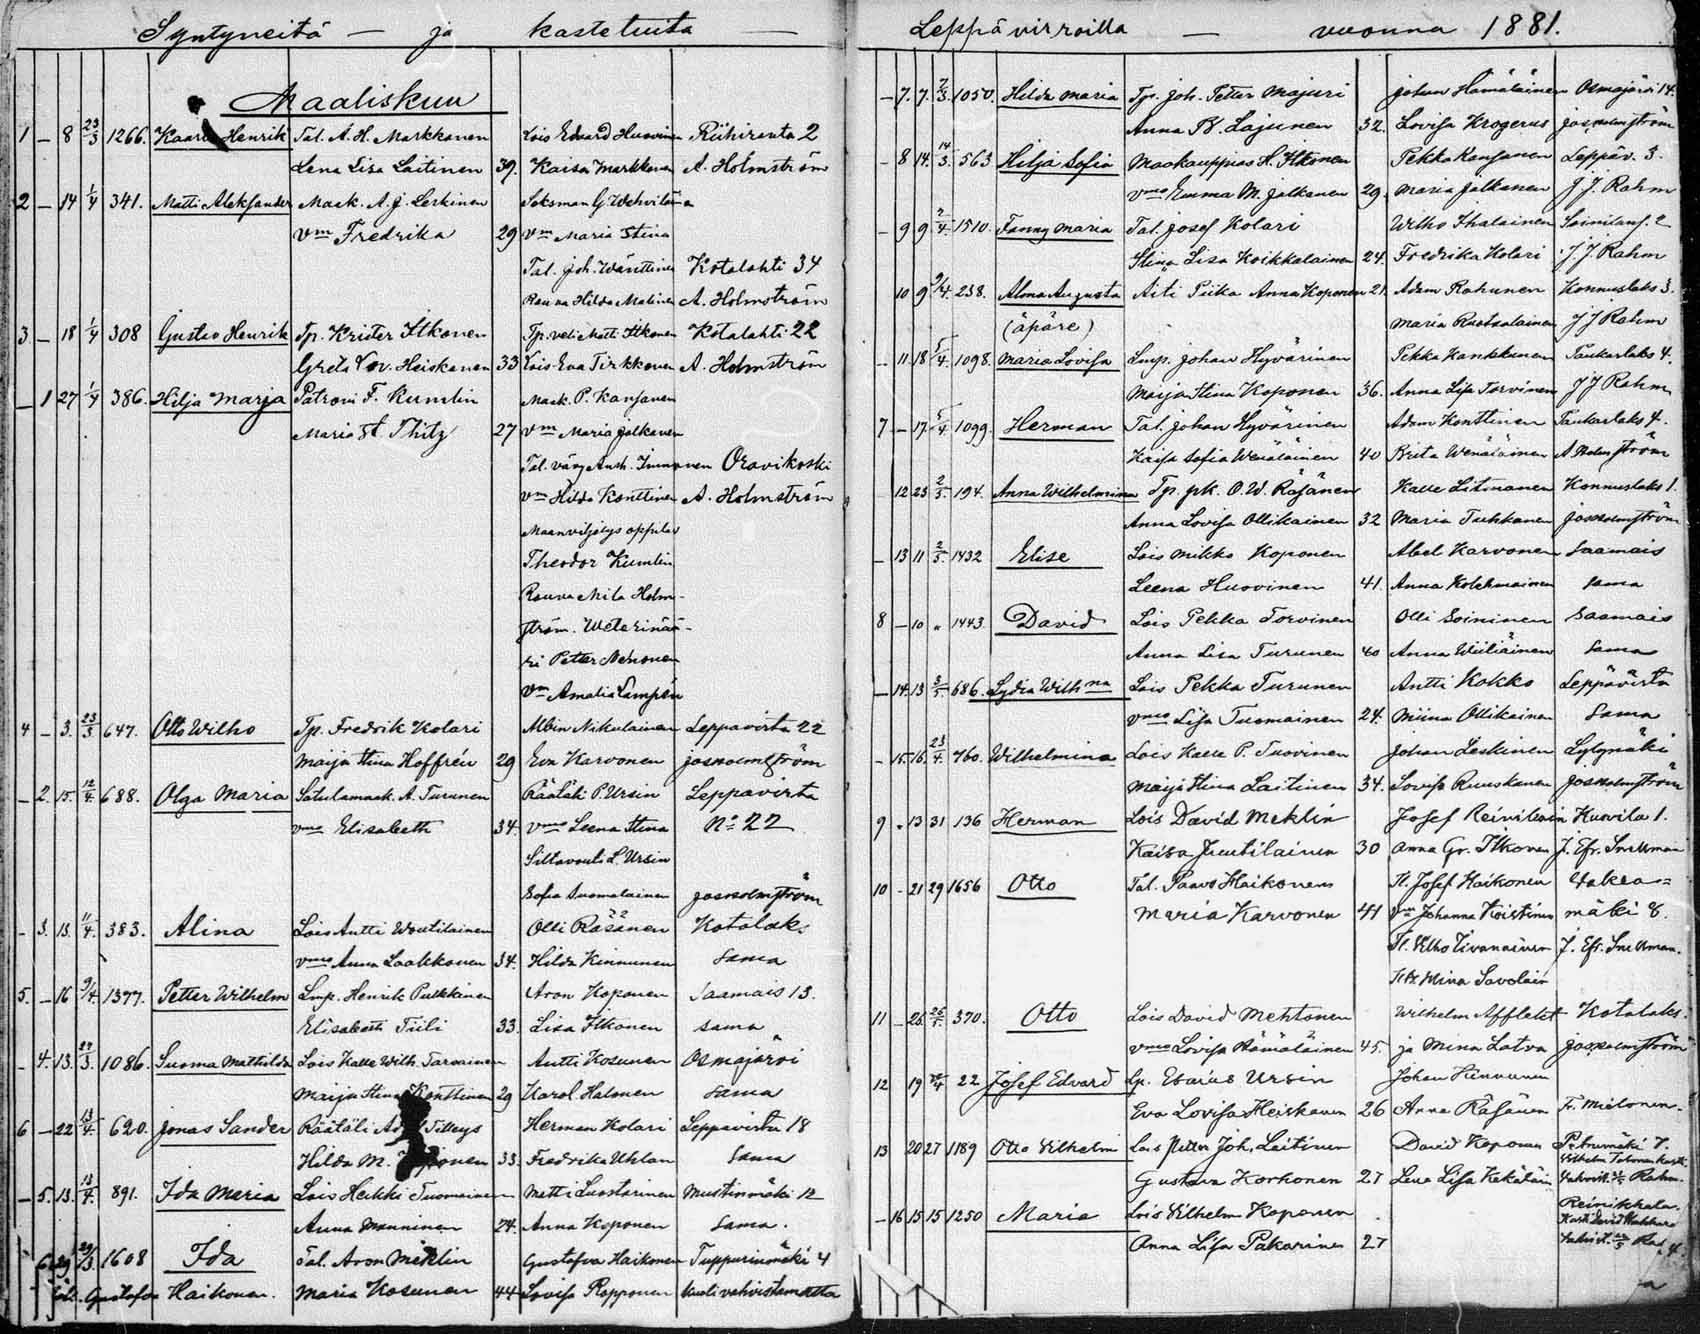 Syntyneitä — ja kastetuita —
Maaliskuu
1 — 8 23/3 1266. Kaarle Henrik Tal. A. H. Markkanen Lois Edvard Huovinen Riihiranta 2
Lena Lisa Laitinen 39. Kaisa Markkanen A. Holmström
2 — 14 1/4 341. Matti Aleksander Maak. A. J. Leskinen Seksman G. Wehviläinen
vm Fredrika 29 vm Maria Stina
Tal. Joh. Wänttinen Kotalahti 34
Rouva Hilda Malinen A. Holmström
3 — 18 1/4 308 Gustav Henrik Tp. Krister Itkonen Tp. veli Matti Itkonen Kotalahti 22
Greta Lov. Heiskanen 33 Lois Eva Tirkkonen A. Holmström
— 1 27 1/4 386. Hilja Marja Patroni F. Kumlin Maak. P. Kansanen
Maria St. Thitz 27 vm Maria Jalkanen
Tal. väng Anth. Immonen Oravikoski
vm Hilda Konttinen A. Holmström
Maanviljelys oppilas
Theodor Kumlin
Rouva Mila Holm-
ström. Weterinää-
ri Petter Nenonen
Vm Amalia Lampén
4 — 3. 23/3 647. Otto Wilho Tp. Fredrik Kolari Albin Nikulainen Leppävirta 22
Maija Stina Hoffrén 29 Eva Karvonen Jos Holmström
— 2. 15. 12/4 688. Olga Maria Satulamaak. A. Turunen Räätäli P. Ursin Leppävirta
vmo Elisabeth 34. vmo Leena Stina No 22
Siltavouti L. Ursin
Sofia Suomalainen Jos Holmström
— 3. 13. 11/4 383. Alina Lois Antti Woutilainen Olli Räsänen Kotalaks
vmo Anna Laakkonen 34. Hilda Kinnunen Sama
5. — 16 9/4 1377. Petter Wilhelm Lmp. Henrik Pulkkinen Aron Koponen Saamais 13.
Elisabeth Tiili 33. Lisa Itkonen Sama
— 4. 13. 27/3 1086. Suoma Mathilda Lois Kalle Wilh. Tarvainen Antti Kosunen Osmajärvi
Maija Stina Konttinen 29 Karol. Halonen Sama
6 — 22 13/4 620. Jonas Sander Räätäli Tilleys Herman Kolari Leppävirta 18
Hilda M. 33. Fredrika Uhlan Sama
— 5. 13. 13/4 891. Ida Maria Lois Heikki Tuomainen Matti Luostarinen Mustinmäki 12
Anna Manninen 24. Anna Koponen Sama.
6 29 1608 Ida Tal. Aron Miklin Gustafva Haikonen Tuppurinmäki 4
Gustafva Haikonen. Maria Kosunen 44 Lovisa Ropponen Kuoli vahvistamatta
Leppävirroilla — vuonna 1881.
— 7. 7. 7/3 1050. Hilda Maria Tp. Joh. Petter Majuri Johan Hämäläinen Osmajärvi 14.
Anna K. Lajunen 32. Lovisa Krogerus Jos Holmström
— 8 14. 14/3 563 Hilja Sofia Maakauppias H. Itkonen Pekka Kansanen Leppäv. 3.
vmo Emma M. Jalkanen 29. Maria Jalkanen J J. Rahm
— 9 9 2/4 1510. Fanny Maria Tal. Josef Kolari Wilho Ihalainen Soinilans. 2
Stina Lisa Koikkalainen 24. Fredrika Kolari J. J. Rahm
10 9 9/4 238. Alma Augusta Äiti Piika Anna Koponen 21. Adam Rahunen Konnuslaks 3.
(äpäre) Maria Ruotsalainen J J Rahm
— 11. 18 5/4 1098. Maria Lovisa Lmp. Johan Hyvärinen Pekka Kankkunen Paukarlaks 4.
Maija Stina Koponen 36. Anna Lisa Torvinen J J Rahm
7 — 17. 5/4 1099. Herman Tal. Johan Hyvärinen Adam Konttinen Paukarlaks 4.
Kaisa Sofia Wenäläinen 40 Brita Wenäläinen A Holmström
12 23 2/5 194. Anna Wilhelmina Tp. pk. O. W. Räsänen Kalle Litmanen Konnuslaks 1.
Anna Lovisa Ollikainen 32 Maria Tuhkanen Jos Holmström
— 13 11 2/5 1432 Elise Lois Mikko Koponen Abel Karvonen Saamais
Leena Huovinen 41. Anna Kolehmainen sama
8 — 10 „ 1443. David Lois Pekka Torvinen Olli Soininen Saamais
Anna Lisa Turunen 40 Anna Wiiliäinen Sama
— 14. 13 3/5 686. Lydia Wilhna Lois Pekka Turunen Antti Kokko Leppävirta
vmo Lisa Tuomainen 24. Miina Ollikainen Sama
— 15. 16. 23/4 760. Wilhelmina Lois Kalle P. Tuovinen Johan Leskinen Lylymäki
Maija Stina Laitinen 34. Lovisa Ruuskanen Jos Holmström
9 „ 13 31 136 Herman Lois David Meklin Josef Reinikain Kurvila 1.
Kaisa Juutilainen 30 Anna Gr. Itkonen J. Efr. Snellman
10 - 21 29 1656 Otto Tal. Paavo Haikonen Tl. Josef Haikonen
Maria Karvonen 41 vm Johanna Koistinen mäki 8.
J. Efr. Snellman.
Mina Savolain
11 — 25. 25/4 370. Otto Lois David Mehtonen Wilhelm Afflekt Kotalaks.
vmo Lovisa Hämäläinen 45. ja Mina Latva Jos Holmström
12 19 22 Josef Edvard Lp. Esaias Ursin Johan Kinnunen
Eva Lovisa Heiskanen 26 Anna Räsänen Fr. Mielonen.
13 20 27 1189 Otto Vilhelm Lois Petter Joh. Laitinen David Koponen Petrumäki 7.
Gustava Korhonen 27 Lena Lisa Kekäläin Rahm.
— 16 15 15 1250 Maria Lois Vilhelm Koponen Reinikkala.
Anna Lisa Pakarinen 27